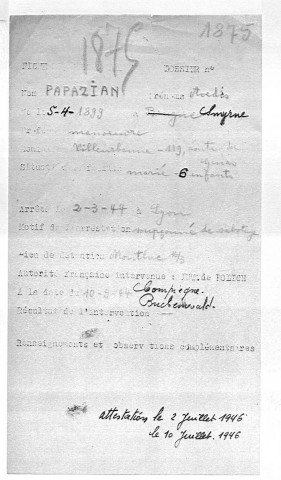 1875
1875
FICHE DOSSIER n°
Nom PAPAZIAN Prénoms Avedis
5-4-1899 à Smyrne
manoeuvre
Villeurbanne - 119, route de
marié 6 enfants
Arrêté le 2-3-44 à Lyon
Motif de l'arrestation soupçonné de sabotage
Lieu de détention Montluc
Autorité française intervenue : de POLICE
A la date du 10-3-44 Compiègne-
Buchenwald.
Résultat de l'intervention
Renseignements et observations complémentaires
attestation le 2 Juillet 1946
le 10 Juillet. 1946